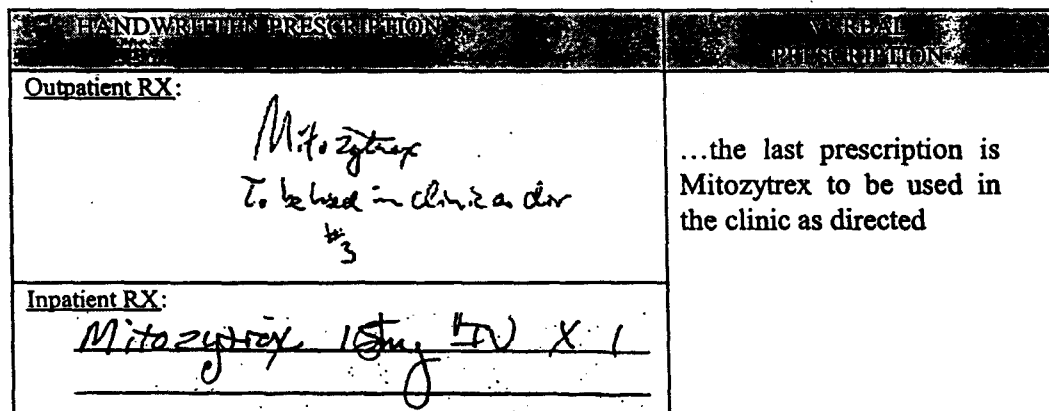 HANDWRITTEN PRESCRIPTION
VERBAL
PRESCRIPTION
Outpatient RX:
Mitozytrex
To be used in clinic as dir
#3
...the last prescription is
Mitozytrex to be used in
the clinic as directed
Inpatient RX:
Mitozytrex 15mg IV X 1